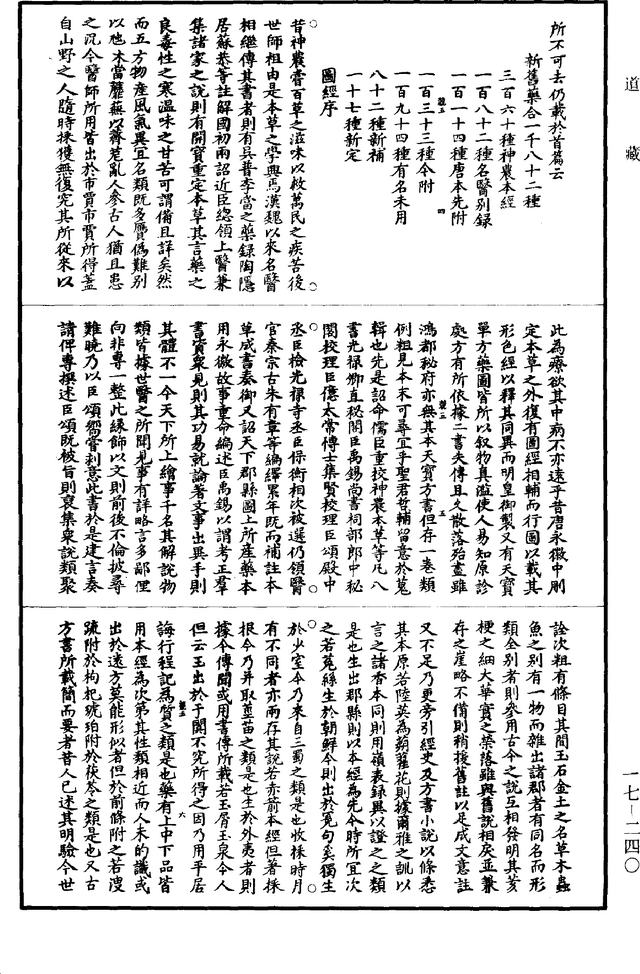 道藏
所不可去仍載於首篇云
新舊藥合一千八十二種
三百六十種神農本經
一百八十二種名醫別錄
一百一十四種唐本先附
一百三十三種今附
一百九十四種有名未用
八十二種新補
一十七種新定
圖經序
昔神農嘗百草之滋味以救萬民之疾苦後
世師祖由是本草之學興焉漢魏以來名醫
相繼傳其書者則有吳普李當之藥錄陶隱
居蘇恭等註解國初兩詔近臣總領上醫兼
集諸家之說則有開寶重定本草其言藥之
良毒性之寒溫味之甘苦可謂備且詳矣然
而五方物產風氣異宜名類既多贗偽難別
以虺牀當蘼蕪以薺苨亂人參古人猶且患
之況今醫師所用皆出於市賈市賈所得蓋
自山野之人隨時採獲無復究其所從來以
此為療欲其中病不亦遠乎昔唐永徽中刪
定本草之外復有圖經相輔而行圖以載其
形色經以釋其同異而明皇御製又有天寶
單方藥圖皆所以叙物真濫使人易知原診
處方有所依據二書失傳且久散落殆盡雖
鴻都秘府亦無其本天寶方書但存一卷類
例粗見本末可尋宜乎聖君哲輔留意於蒐
輯也先是詔命儒臣重校神農本草等凡八
書光祿卿直秘閣臣禹錫尚書祠部郎中秘
閣校理臣億太常博士集賢校理臣頌殿中
丞臣檢光祿寺丞臣保衡相次被選仍領醫
官秦宗古朱有章等編繹累年既而補註本
草成書奏御又詔天下郡縣圖上所產藥本
用永徽故事重命編述臣禹錫以謂考正群
書資眾見則其功易就論著文事出異手則
其體不一今天下所上繪事千名其解說物
類皆據世醫之所聞見事有詳略言多鄙俚
向非專一整比緣飾以文則前後不倫披尋
難曉乃以臣頌嚮嘗刻意此書於是建言奏
請俾專撰述臣頌既被旨則裒集眾說類聚
詮次粗有條目其間玉石金土之名草木蟲
魚之別有一物而雜出諸郡者有同名而形
類全別者則參用古今之說互相發明其荄
梗之細大華實之榮落雖與舊說相戾並兼
存之崖略不備則稍援舊註以足成文意註
又不足乃更旁引經史及方書小說以條悉
其本原若陸英為蒴藋花則據爾雅之訓以
言之諸香本同則用嶺表錄異以證之之類
是也生出郡縣則以本經為先今時所宜次
之若菟絲生於朝鮮今則出於冤句奚獨生
於少室今乃來自三蜀之類是也收採時月
有不同者亦兩存其說若赤箭本經但著採
根今乃并取莖苗之類是也生於外夷者則
據今傳聞或用書傳所載若玉屑玉泉今人
但云玉出於于闐不究所得之因乃用平居
誨行程記為質之類是也藥有上中下品皆
用本經為次第其性類相近而人未的識或
出於遠方莫能形似者但於前條附之若溲
疏附於枸杞琥珀附於茯苓之類是也又古
方書所載簡而要者昔人已述其明驗今世
一七—二四〇